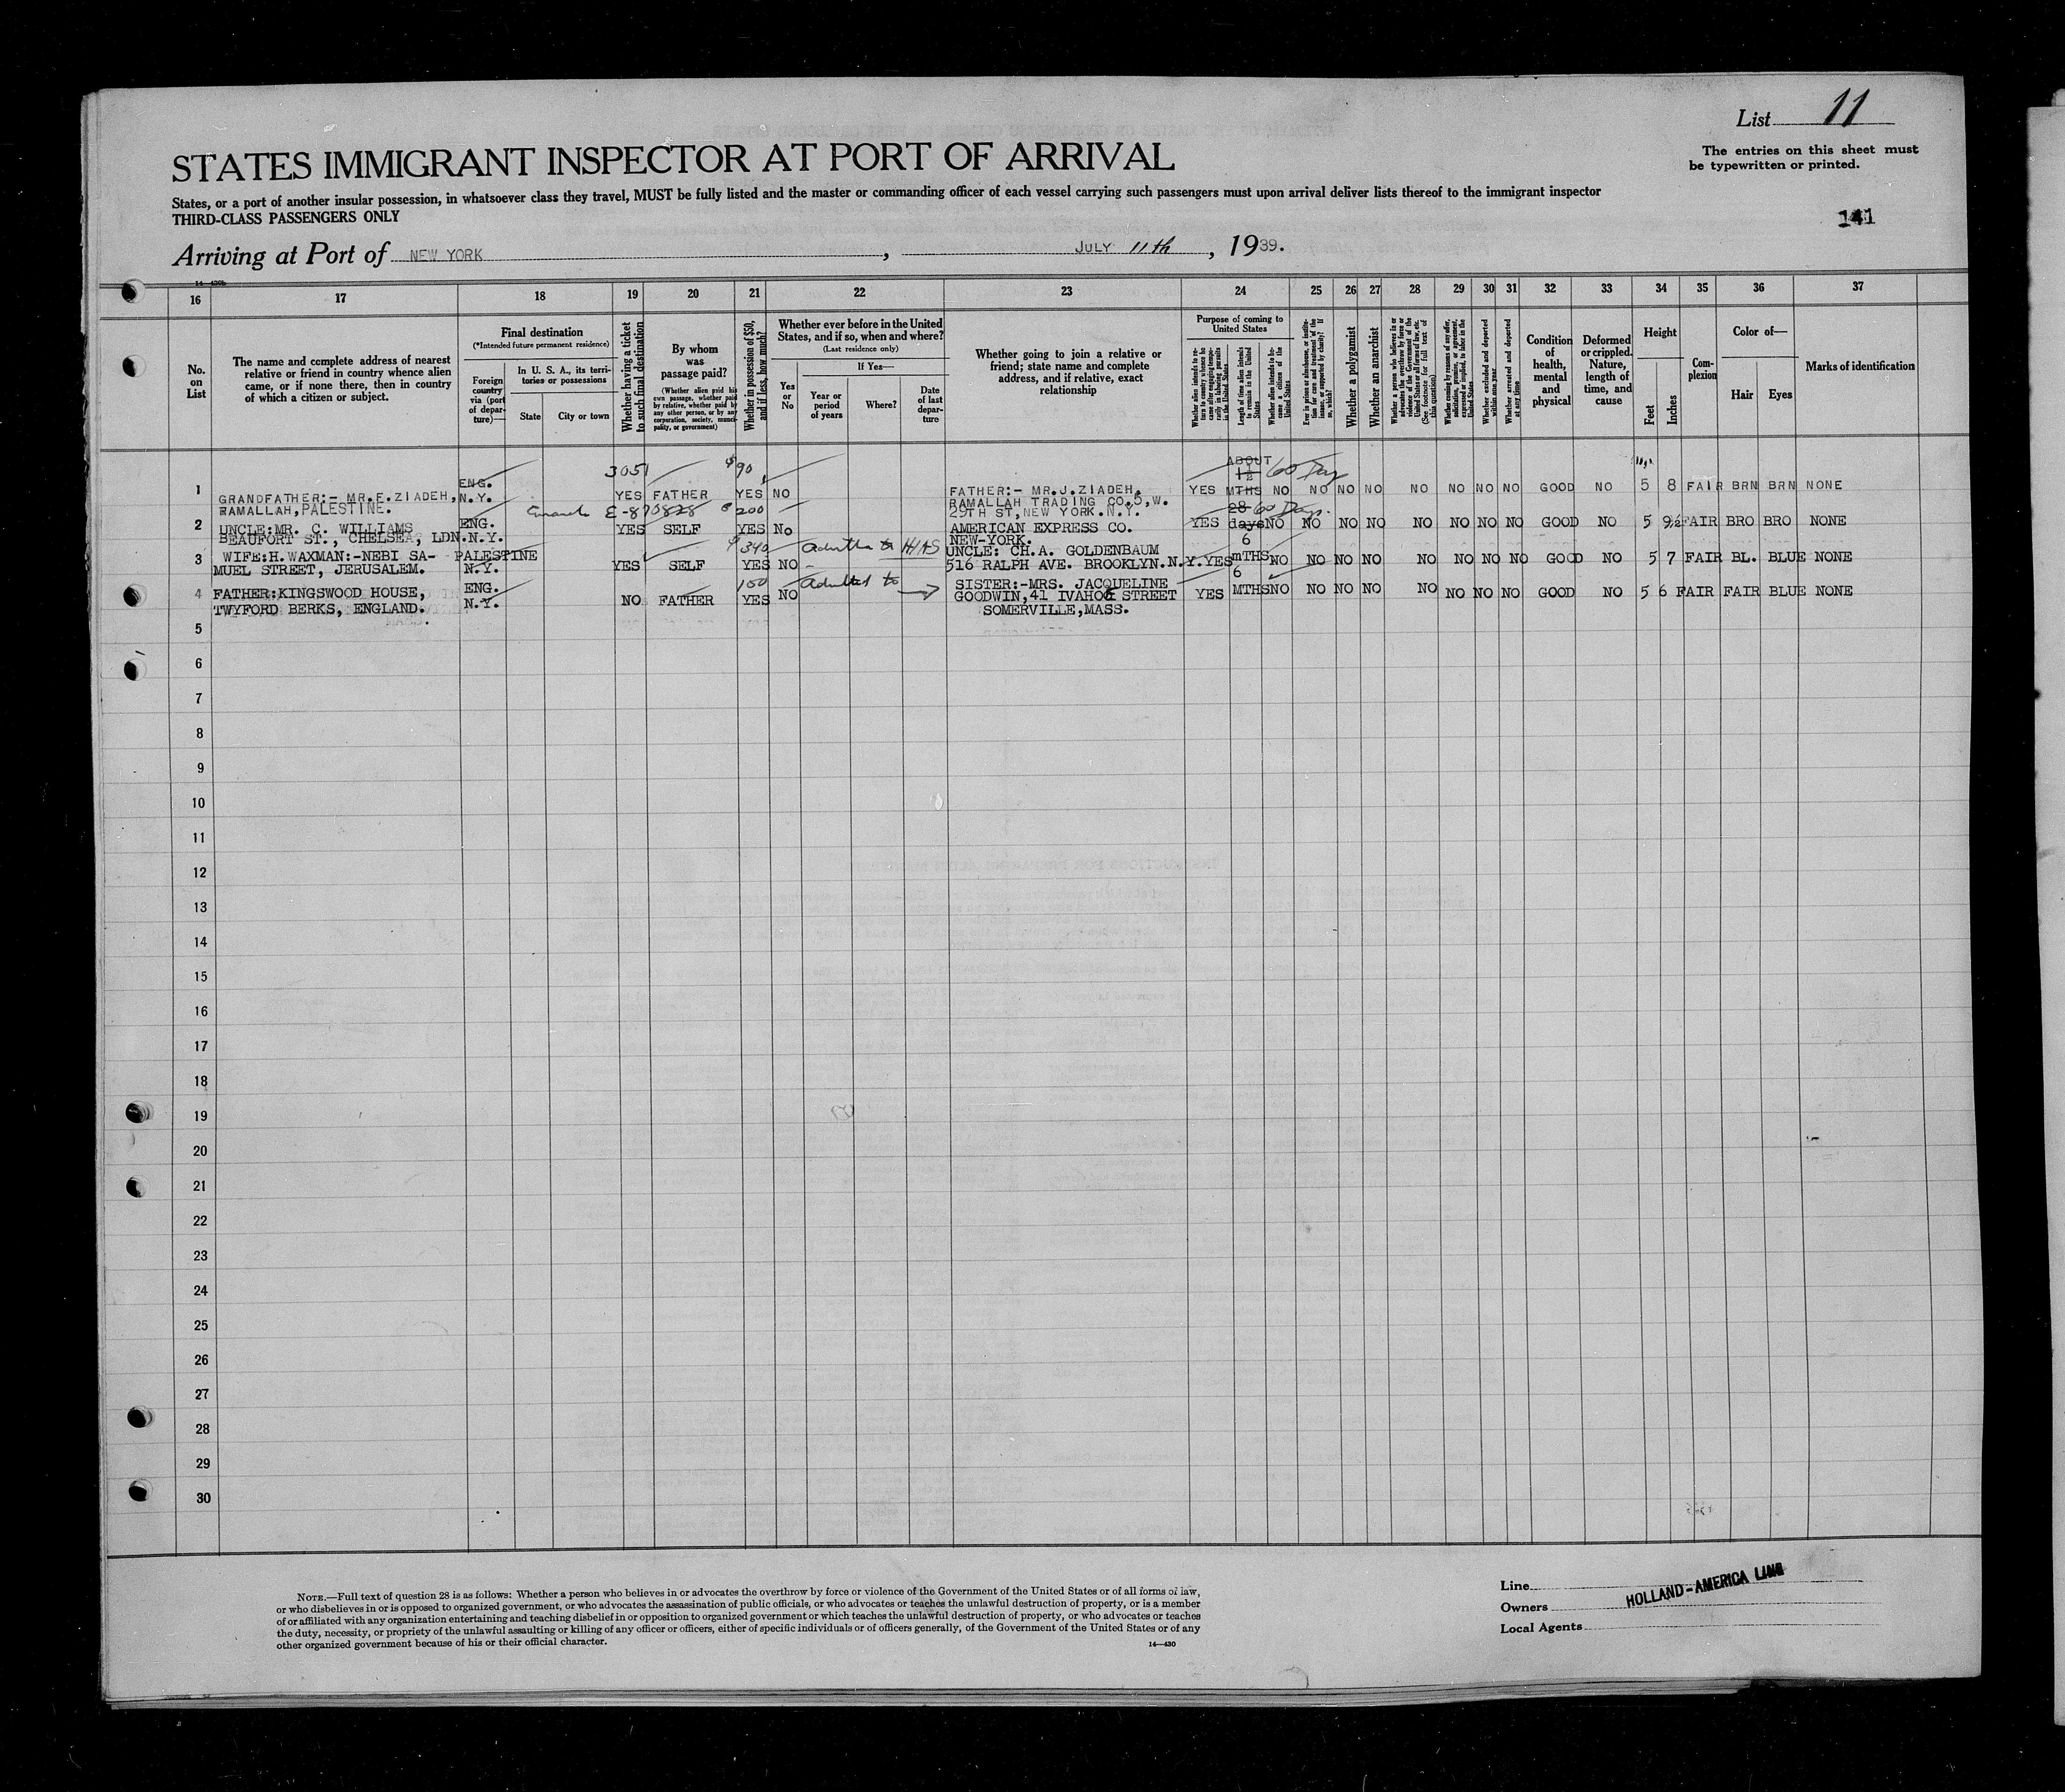 List 11
The entries on this sheet must
be typewritten or printed.
STATES IMMIGRANT INSPECTOR AT PORT OF ARRIVAL
States, or a port of another insular possession, in whatsoever class they travel, MUST be fully listed and the master or commanding officer of each vessel carrying such passengers must upon arrival deliver lists thereof to the immigrant inspector
THIRD-CLASS PASSENGERS ONLY
141
Arriving at Port of NEW YORK, JULY 11th, 1939.
16 17 18 19 20 21 22 23 24 25 26 27 28 29 30 31 32 33 34 35 36 37
No. on List
The name and complete address of nearest
relative or friend in country whence alien
came, or if none there, then in country
of which a citizen or subject.
Final destination
(*Intended future permanent residence)
Foreign country via (port of departure)—
In U. S. A., its territories or possessions
State
City or town
Whether having a ticket to such final destination
By whom was passage paid?
(Whether alien paid his own passage, whether paid by relative, whether paid by any other person, or by any corporation, society, municipality, or government)
Whether in possession of $50, and if less, how much?
Whether ever before in the United
States, and if so, when and where?
(Last residence only)
Yes or No
If Yes—
Year or period of years
Where?
Date of last departure
Whether going to join a relative or
friend; state name and complete
address, and if relative, exact
relationship
Purpose of coming to United States
Length of time alien intends to remain in the United States
Whether alien intends to become a citizen of the United States
Whether a polygamist
Whether an anarchist
Whether arrested and deported at any time
Condition of health, mental and physical
Deformed or crippled. Nature, length of time, and cause
Height
Feet
Inches
Complexion
Color of—
Hair
Eyes
Marks of identification
3051 $90 ABOUT 60 Days
1 GRANDFATHER:- MR.E.ZIADEH, ENG. N.Y. YES FATHER YES NO FATHER:- MR.J.ZIADEH, YES 1½ MTHS NO NO NO NO NO NO NO NO GOOD NO 5 8 FAIR BRN BRN NONE
RAMALLAH, PALESTINE. E-870828 $200 RAMALLAH TRADING CO.5,W.
29TH ST,NEW YORK.N.Y.
2 UNCLE:MR. C. WILLIAMS ENG. YES SELF YES No AMERICAN EXPRESS CO. YES 28 days 60 Days. NO NO NO NO NO NO NO NO GOOD NO 5 9½ FAIR BRO BRO NONE
BEAUFORT ST., CHELSEA, LDN. N.Y. NEW-YORK.
$340 admitted to HIAS
3 WIFE:H.WAXMAN:-NEBI SA- PALESTINE YES SELF YES NO UNCLE: CH.A. GOLDENBAUM YES 6 mTHS NO NO NO NO NO NO NO NO GOOD NO 5 7 FAIR BL. BLUE NONE
MUEL STREET, JERUSALEM. N.Y. 516 RALPH AVE. BROOKLYN.N.Y.
150 admitted to
4 FATHER:KINGSWOOD HOUSE, ENG. NO FATHER YES NO SISTER:-MRS. JACQUELINE YES 6 MTHS NO NO NO NO NO NO NO NO GOOD NO 5 6 FAIR FAIR BLUE NONE
TWYFORD BERKS, ENGLAND. N.Y. GOODWIN,41 IVAHOE STREET
SOMERVILLE,MASS.
5
6
7
8
9
10
11
12
13
14
15
16
17
18
19
20
21
22
23
24
25
26
27
28
29
30
NOTE.—Full text of question 28 is as follows: Whether a person who believes in or advocates the overthrow by force or violence of the Government of the United States or of all forms of law,
or who disbelieves in or is opposed to organized government, or who advocates the assassination of public officials, or who advocates or teaches the unlawful destruction of property, or who is a member
of or affiliated with any organization entertaining and teaching disbelief in or opposition to organized government or which teaches the unlawful destruction of property, or who advocates or teaches
the duty, necessity, or propriety of the unlawful assaulting or killing of any officer or officers, either of specific individuals or of officers generally, of the Government of the United States or of any
other organized government because of his or their official character.
14—430
Line
Owners HOLLAND-AMERICA LINE
Local Agents